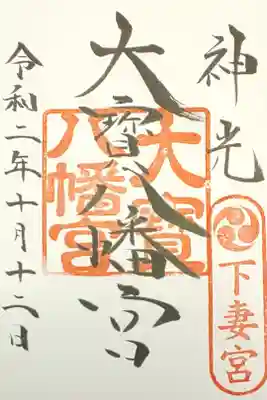 神光
下妻宮
大寳八幡宮
大寳八幡宮
令和二年十月十二日